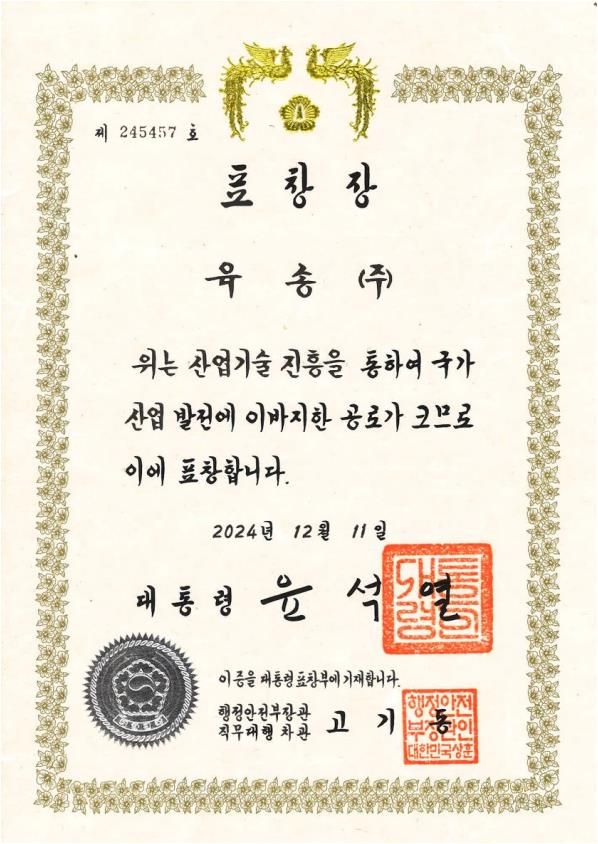 제 245457 호
표 창 장
육 송 (주)
위는 산업기술 진흥을 통하여 국가
산업 발전에 이바지한 공로가 크므로
이에 표창합니다.
2024년 12월 11일
대 통 령 윤 석 열
대통
령의인
이 증을 대통령표창부에 기재합니다.
행정안전부장관
직무대행 차관 고 기 동
행정안전
부장관인
대한민국상훈